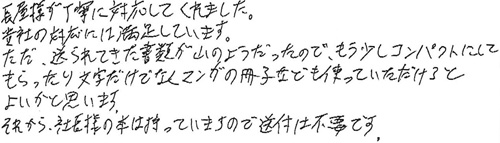 長屋様が丁寧に対応してくれました。
貴社の対応には満足しています。
ただ、送られてきた書類が山のようだったので、もう少しコンパクトにして
もらったり文字だけでなくマンガの冊子なども使っていただけると
よいかと思います。
それから、社長様の本は持っていますので送付は不要です。